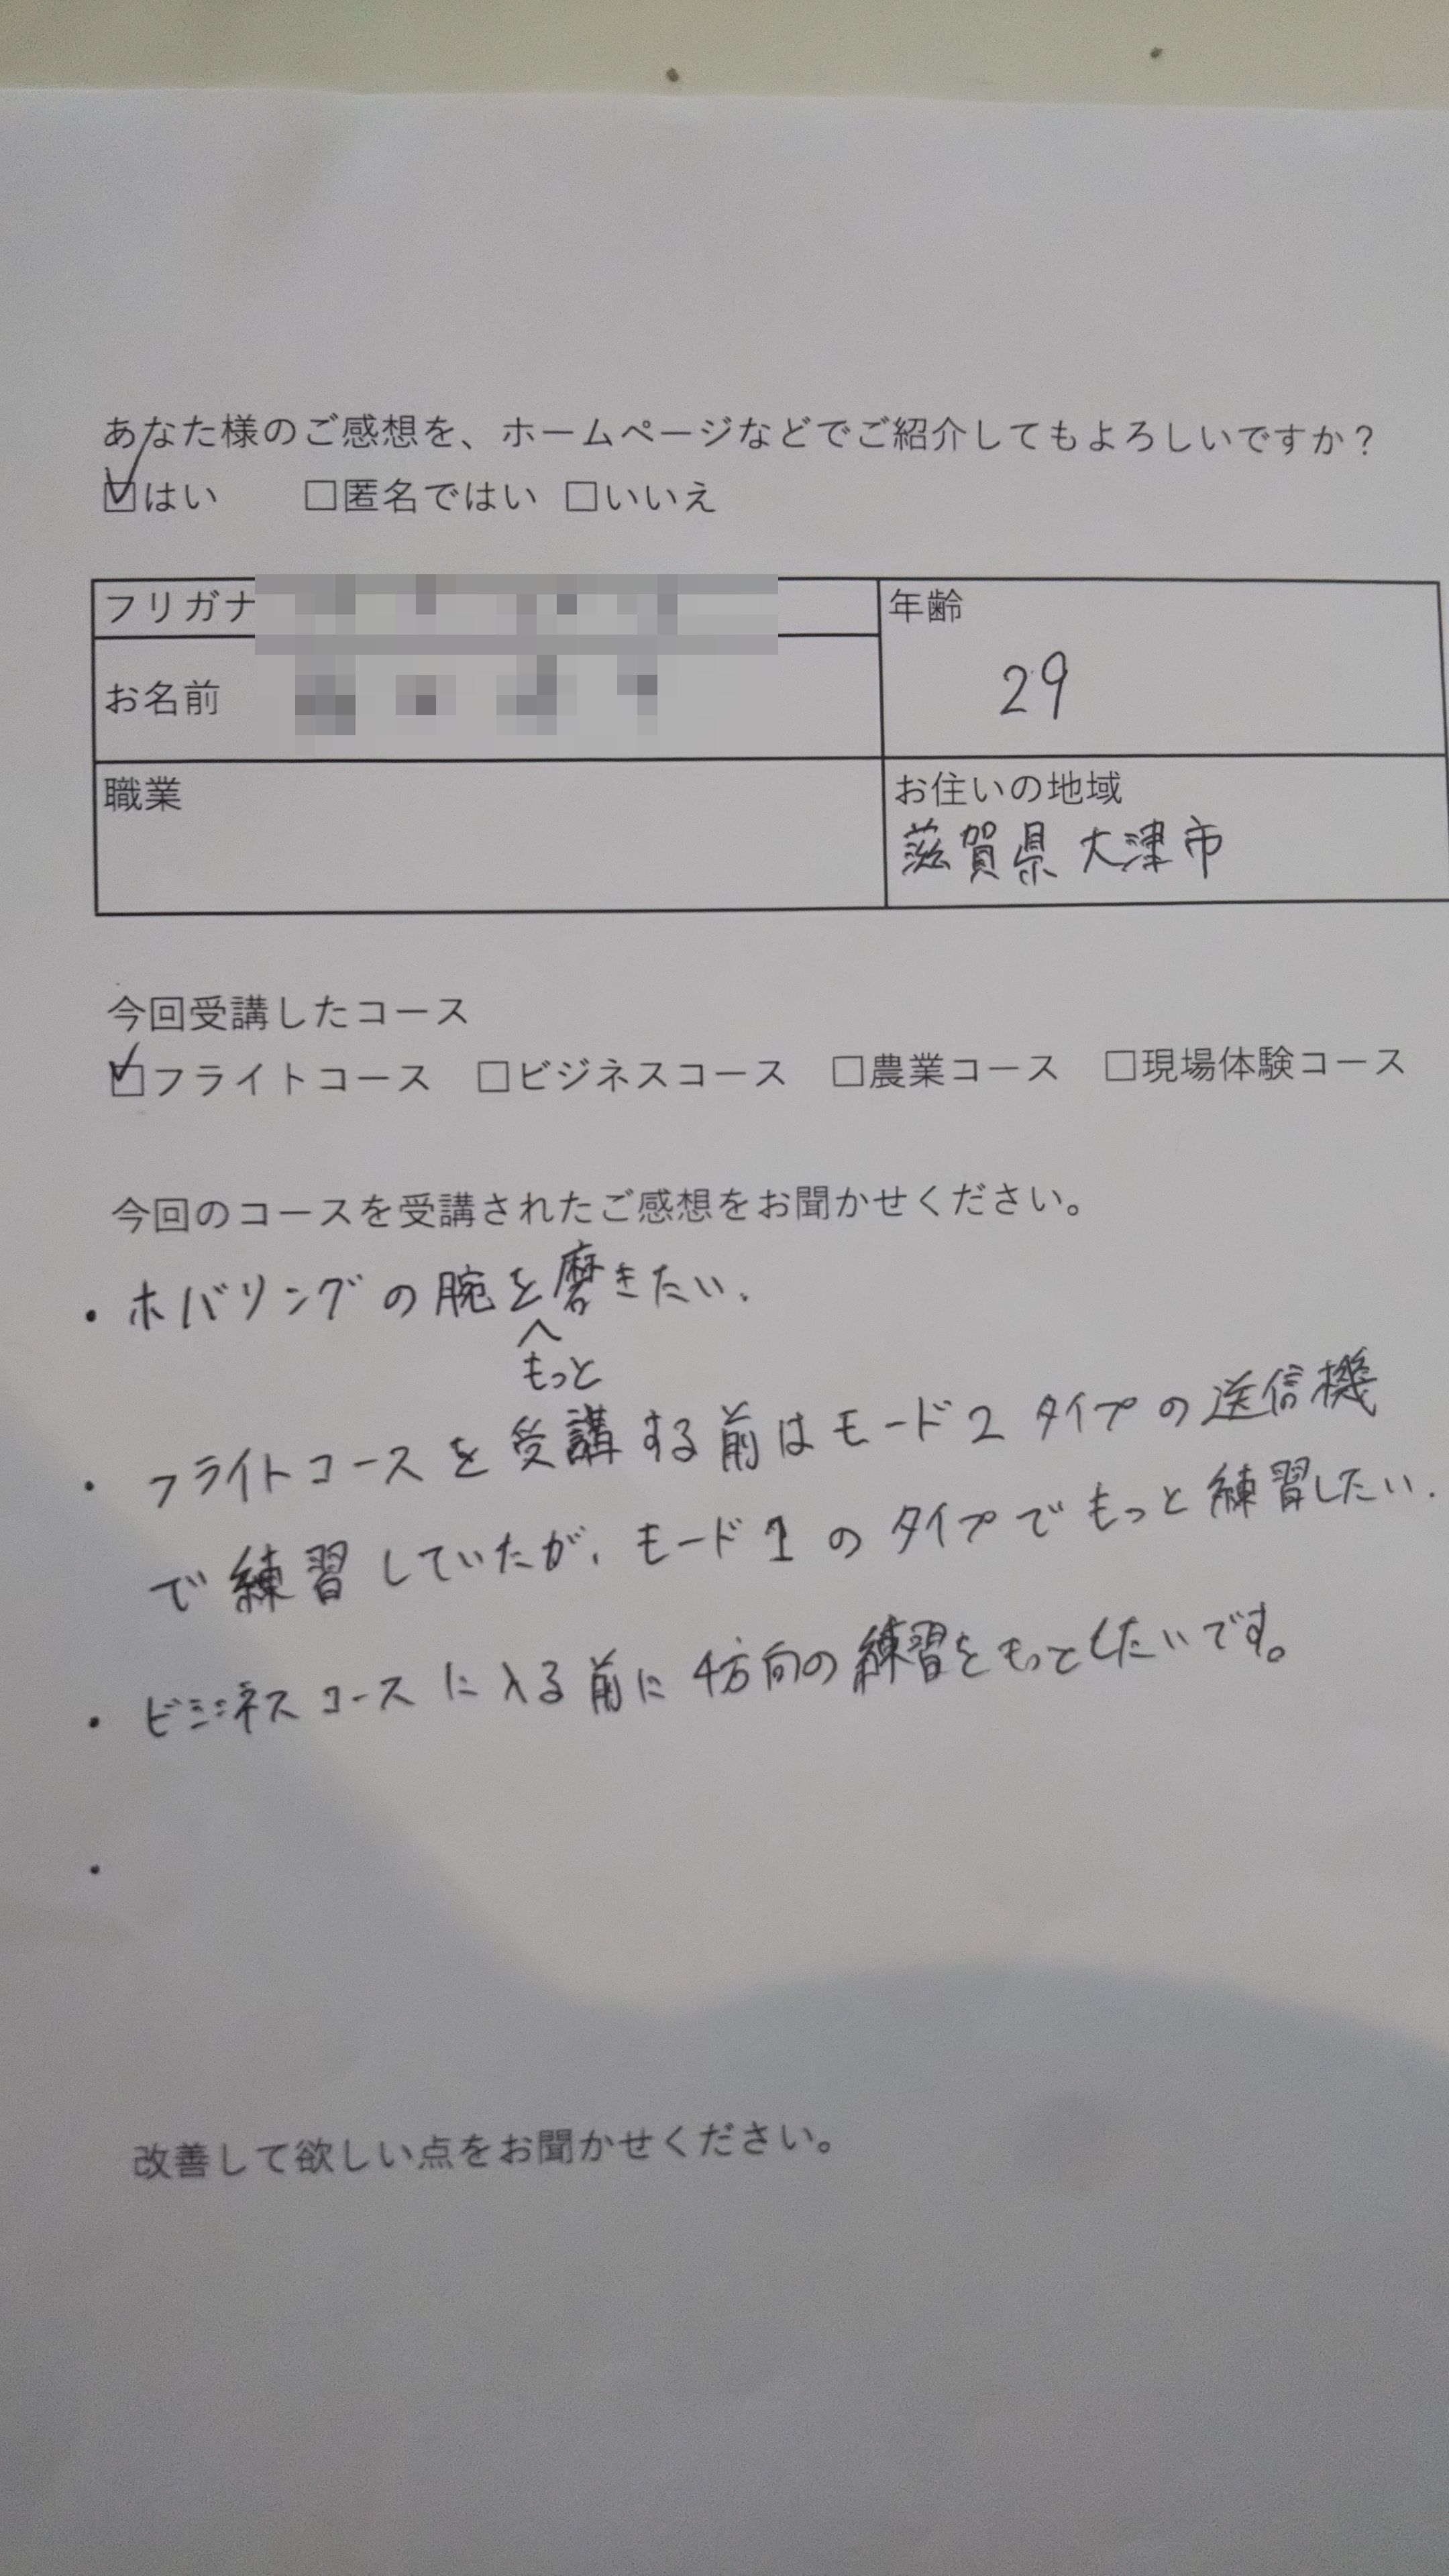 あなた様のご感想を、ホームページなどでご紹介してもよろしいですか？
☑はい　□匿名ではい　□いいえ
フリガナ
年齢
29
お名前
職業
お住いの地域
滋賀県大津市
今回受講したコース
☑フライトコース　□ビジネスコース　□農業コース　□現場体験コース
今回のコースを受講されたご感想をお聞かせください。
・ホバリングの腕を磨きたい.
もっと
・フライトコースを受講する前はモード2タイプの送信機
で練習していたが、モード1のタイプでもっと練習したい.
・ビジネスコースに入る前に4方向の練習をもっとしたいです。
・
改善して欲しい点をお聞かせください。